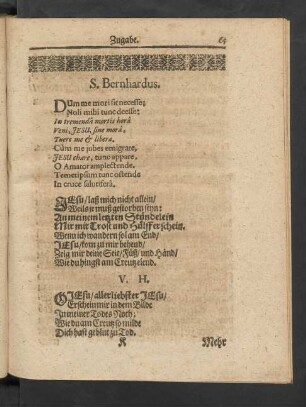 Zugabe. 65
S. Bernhardus.
DUm me mori sit necesse;
Noli mihi tunc deesse:
In tremendâ mortis horâ
Veni, JESU, sine morâ,
Tuere me & libera,
Cùm me jubes emigrare,
JESU chare, tunc appare,
O Amator amplectende.
Temetipsum tunc ostende
In cruce salutiferâ.
JEsu/ laß mich nicht allein/
Weils je muß gestorben seyn:
An meinem letzten Stündelein
Mir mit Trost und Hülff erschein.
Wenn ich wandern sol am End/
JEsu/ kom zu mir behend/
Zeig mir deine Seit/ Füß/ und Händ/
Wie du hingst am Creutz elend.
V. H.
O JEsu/ allerliebster JEsu/
Erschein mir in dem Bilde
In meiner Todes Noth;
Wie du am Creutz so milde
Dich hast geblut zu Tod.
K Mehr